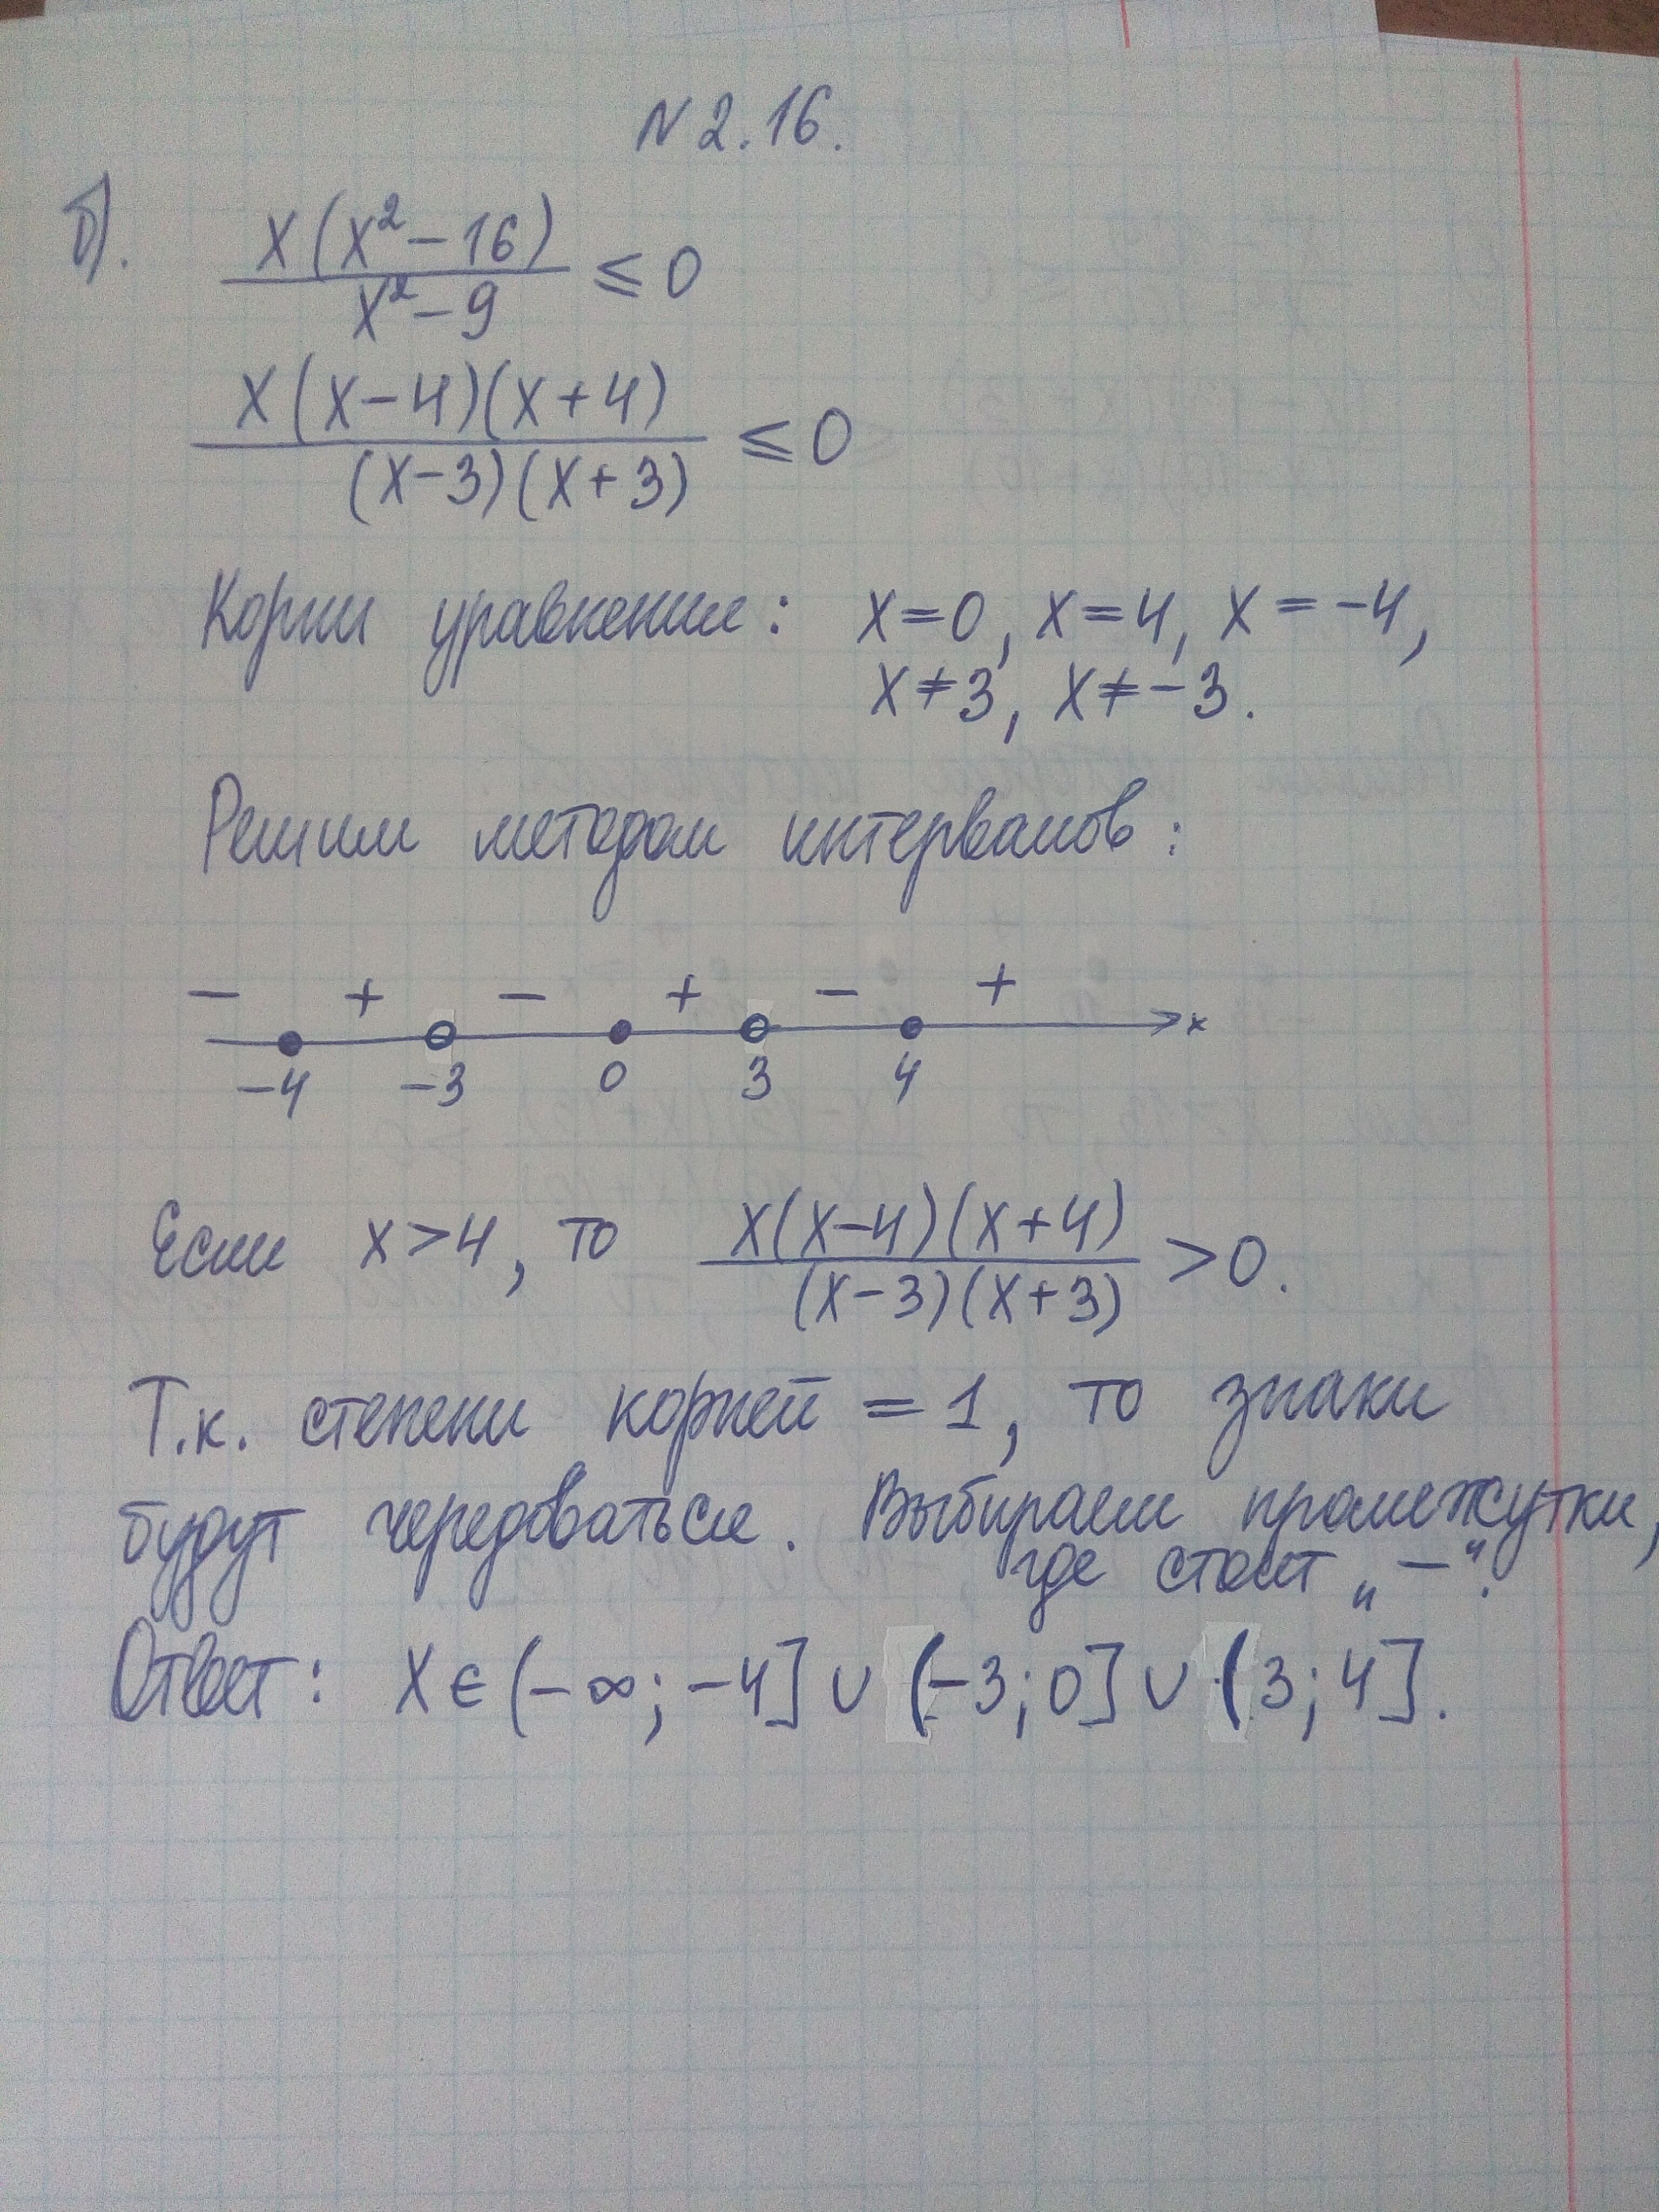 N 2.16.
б). x(x²-16)
x²-9 ≤ 0
x(x-4)(x+4)
(x-3)(x+3) ≤ 0
Корни уравнения: x=0, x=4, x=-4,
x≠3, x≠-3.
Решим методом интервалов:
- + - + - +
x
-4 -3 0 3 4
Если x>4, то x(x-4)(x+4)
(x-3)(x+3) >0.
Т.к. степени корней = 1, то знаки
будут чередоваться. Выбираем промежутки,
где стоит „-“.
Ответ: x∈(-∞;-4]∪(-3;0]∪(3;4].